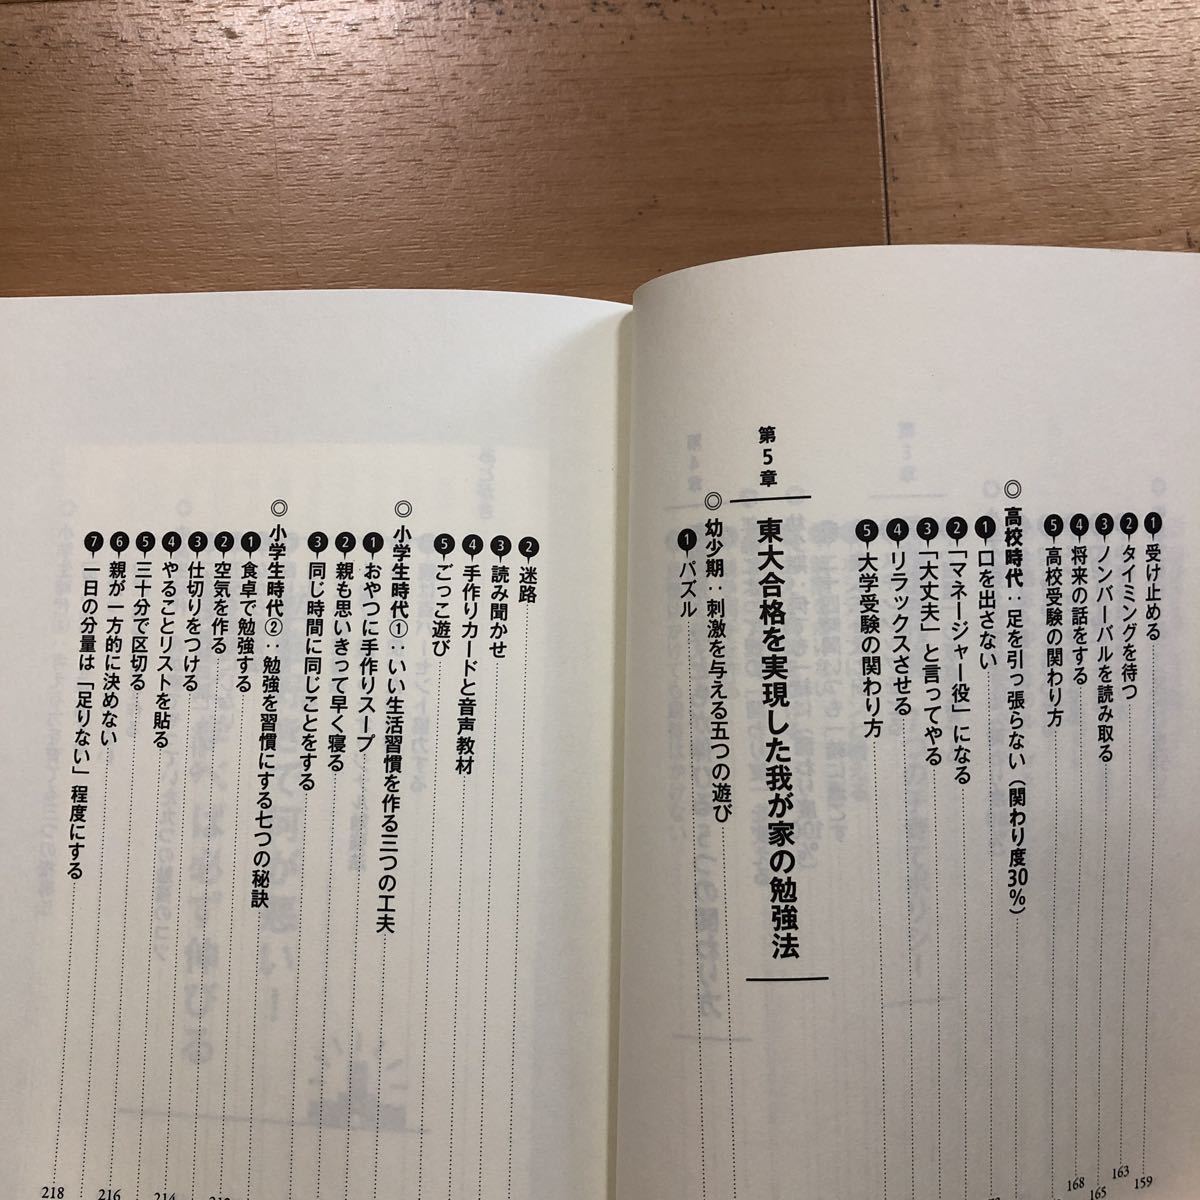 ❶受け止める
159
❷タイミングを待つ
163
❸ノンバーバルを読み取る
165
❹将来の話をする
168
❺高校受験の関わり方
◎高校時代：足を引っ張らない（関わり度30%）
❶口を出さない
❷「マネージャー役」になる
❸「大丈夫」と言ってやる
❹リラックスさせる
❺大学受験の関わり方
第5章
東大合格を実現した我が家の勉強法
◎幼少期：刺激を与える五つの遊び
❶パズル
❷迷路
❸読み聞かせ
❹手作りカードと音声教材
❺ごっこ遊び
◎小学生時代①：いい生活習慣を作る三つの工夫
❶おやつに手作りスープ
❷親も思いきって早く寝る
❸同じ時間に同じことをする
◎小学生時代②：勉強を習慣にする七つの秘訣
❶食卓で勉強する
❷空気を作る
❸仕切りをつける
❹やることリストを貼る
❺三十分で区切る
❻親が一方的に決めない
216
❼一日の分量は「足りない」程度にする
218